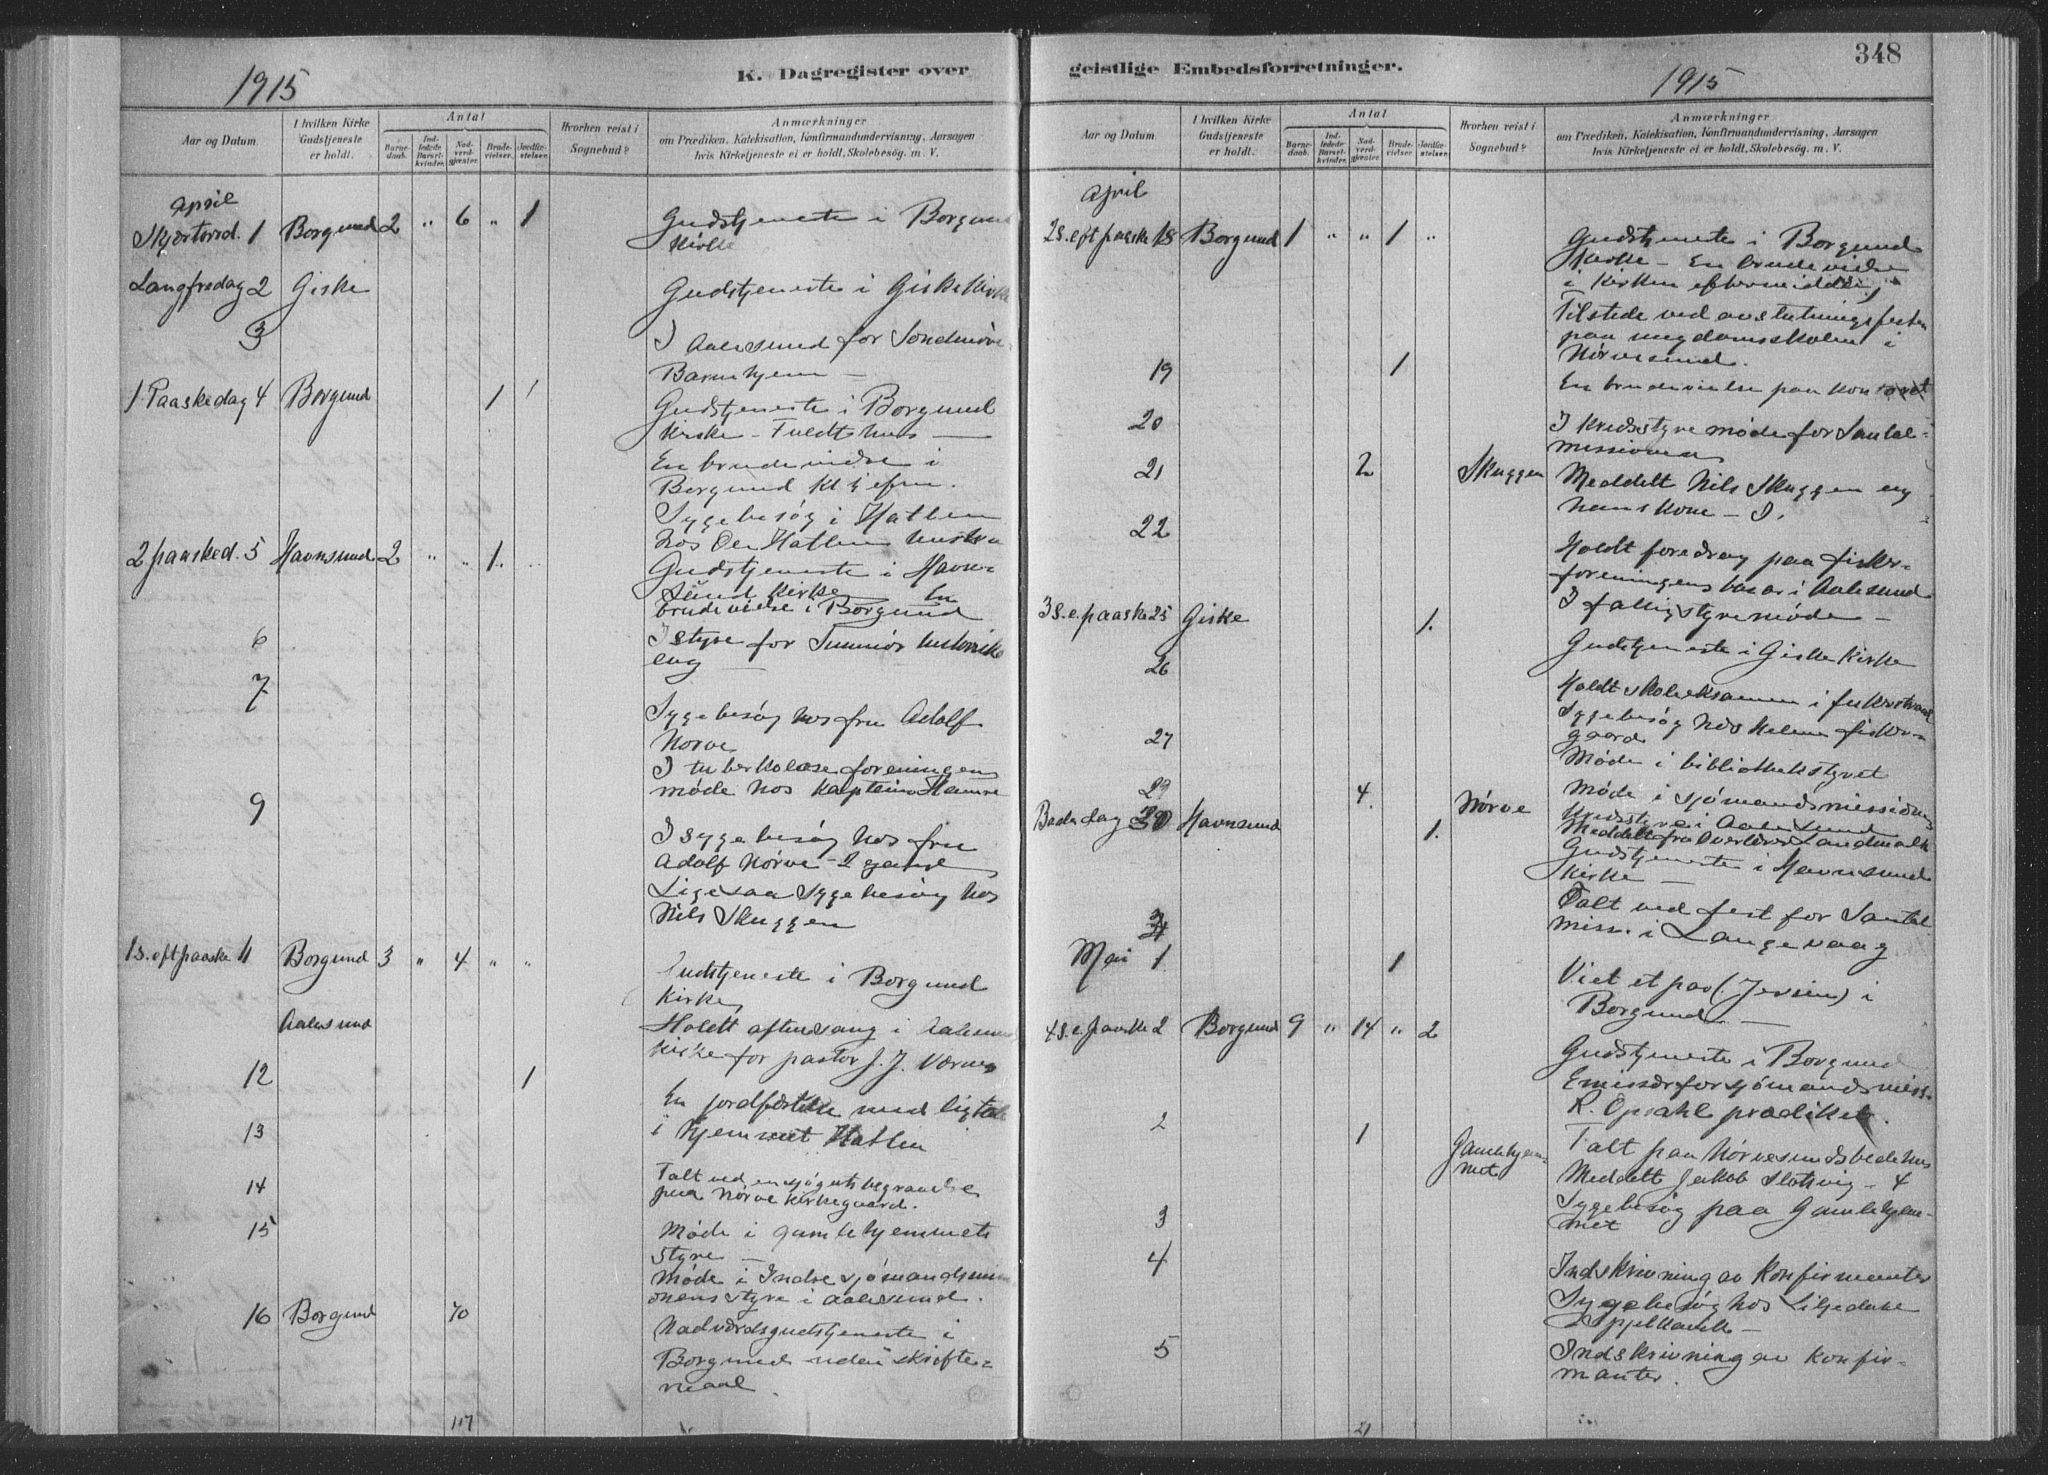 1915
K. Dagregister over
Aar og Datum
I hvilken Kirke
Gudstjeneste
er holdt.
Antal
Barne-
daab.
Ind-
ledede
Barsel-
kvinder.
Nad-
verd-
gjester.
Brude-
vielser.
Jordfæ-
stelser.
Hvorhen reist i
Sognebud?
Anmærkninger
om Prædiken, Katekisation, Konfirmandundervisning, Aarsagen
hvis Kirketjeneste ei er holdt, Skolebesøg. m. V.
April
Skjærtorsd. 1 Borgund 2 " 6 " 1 Gudstjeneste i Borgund
Kirke
Langfredag 2 Giske Gudstjeneste i Giske Kirke
3 I Aalesund for Søndmøre
Barnehjem —
1 Paaskedag 4 Borgund 1 1 Gudstjeneste i Borgund
Kirke — Fuldt hus —
En brudevielse i
Borgund Kl efm.
Sygebesøg i Hatlen
hos Hatlens hustru
2 paasked. 5 Havnsund 2 " " 1 " Gudstjeneste i Havn-
sund Kirke En
brudevielse i Borgund
6 I styre for
lag —
7 Sygebesøg hos fru Adolf
Nørve
I tuberkoloseforeningens
møde hos Kaptein Hamre
9 I sygebesøg hos fru
Adolf Nørve — 2 gange
Ligesaa Sygebesøg hos
Nils Skuggen
1 s. eft paaske 11 Borgund 3 " 4 " " Gudstjeneste i Borgund
Kirke
Aalesund Holdt aftensang i Aalesund
Kirke for pastor J. J. Værnes
12 1 En jordfæstelse med ligtale
i hjemmet Hatlen
13 Talt ved en begravelse
paa Nørve Kirkegaard.
14 Møde i gamlehjemmets
styre —
15 Møde i Indre sjømandsmissi
onens styre i Aalesund.
16 Borgund 70 Nadverdsgudstjeneste i
Borgund uden skrifte-
maal.
117
348
geistlige Embedsforretninger.
1915
Aar og Datum.
I hvilken Kirke
Gudstjeneste
er holdt.
Antal
Barne-
daab.
Ind-
ledede
Barsel-
kvinder.
Nad-
verd-
gjester.
Brude-
vielser.
Jordfæ-
stelser.
Hvorhen reist i
Sognebud?
Anmærkninger
om Prædiken, Katekisation, Konfirmandundervisning, Aarsagen
hvis Kirketjeneste ei er holdt, Skolebesøg. m. V.
April
2 s. eft paaske 18 Borgund 1 " " 1 " Gudstjeneste i Borgund
Kirke — En brudevielse
i Kirken eftermiddag
Tilstede ved avslutningsfesten
paa ungdomsskolen i
Nørvesund.
19 1 En brudevielse paa kontoret
20 I Kredsstyremøde for Santal-
missionen
21 2 Skuggen Meddelt Nils Skuggen og
hans kone — S.
22 Holdt foredrag paa fisker-
foreningens basar i Aalesund
I styremøde —
3 s. e. paaske 25 Giske 1. Gudstjeneste i Giske Kirke
26 Holdt skoleeksamen i Fiskerstrand
Sygebesøg hos Helene Fisker-
gaard
27 Møde i bibliothekstyret
29 4 Nørve Møde i sjømandsmissions
Kredsstyre i Aalesund
Meddelt fru Overlærer Landmark
Bededag 30 Havnsund 1. Gudstjeneste i Havnsund
Kirke —
Talt ved fest for Santal
miss. i Langevaag
Mai 1 1 Viet et par (Jensen) i
Borgund —
4 s. e. paaske 2 Borgund 9 " 14 " 2 Gudstjeneste i Borgund
Emissær for sjømandsmiss.
R. Opsahl prædiket.
2 1 Gamlehjem-
met Talt paa Nørvesunds bedehus
Meddelt Jakob Slotsvig —
3 Sygebesøg paa Gamlehjem-
met
4 Indskrivning av Konfirmanter
Sygebesøg hos
Spjelkavik —
5 Indskrivning av Konfir-
manter.
21